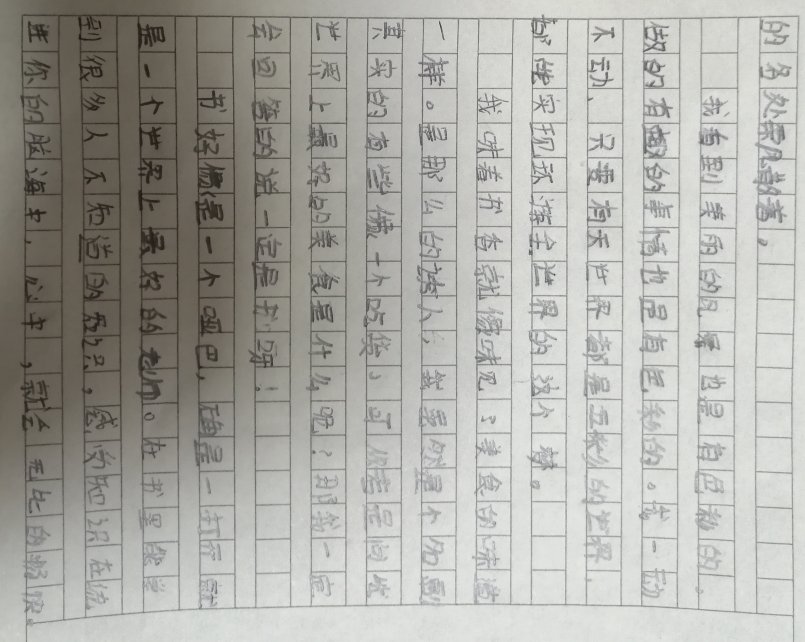 的各处
我看到美丽的风景也是有色彩的。
做的有趣的事情也是有色彩的。我一动
不动，只要有天世界都是五彩的世界，
都能实现环游全世界的这个梦。
我味着书香就像味见了美食的味道
一样。是那么的诱人，
其实的有些像一个吃货，可
世界上最好的美食是什么呢？那我一定
会回答的说一定是书呀！
书好像是一个哑巴，确是一打开就
是一个世界上最好的老师。在书里能学
到很多人不知道的知识，感觉知识在流
进你的脑海中，心中，就会无比的畅快。